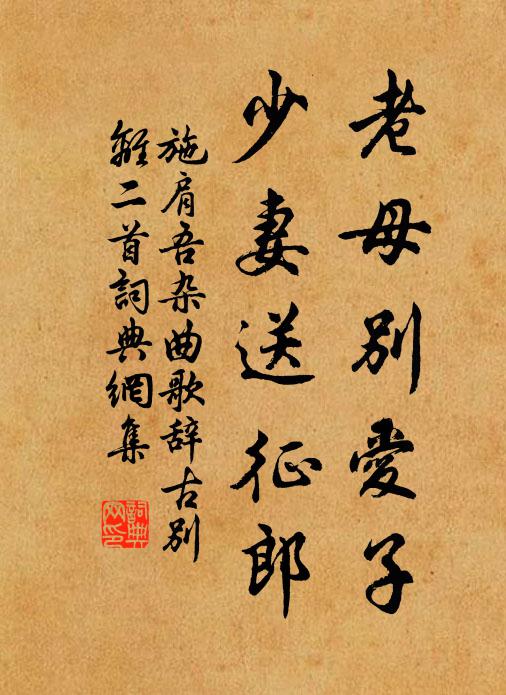 老母別愛子
少妻送征郎
施肩吾杂曲歌辞古別
離二首詞典網集
詞典
网印